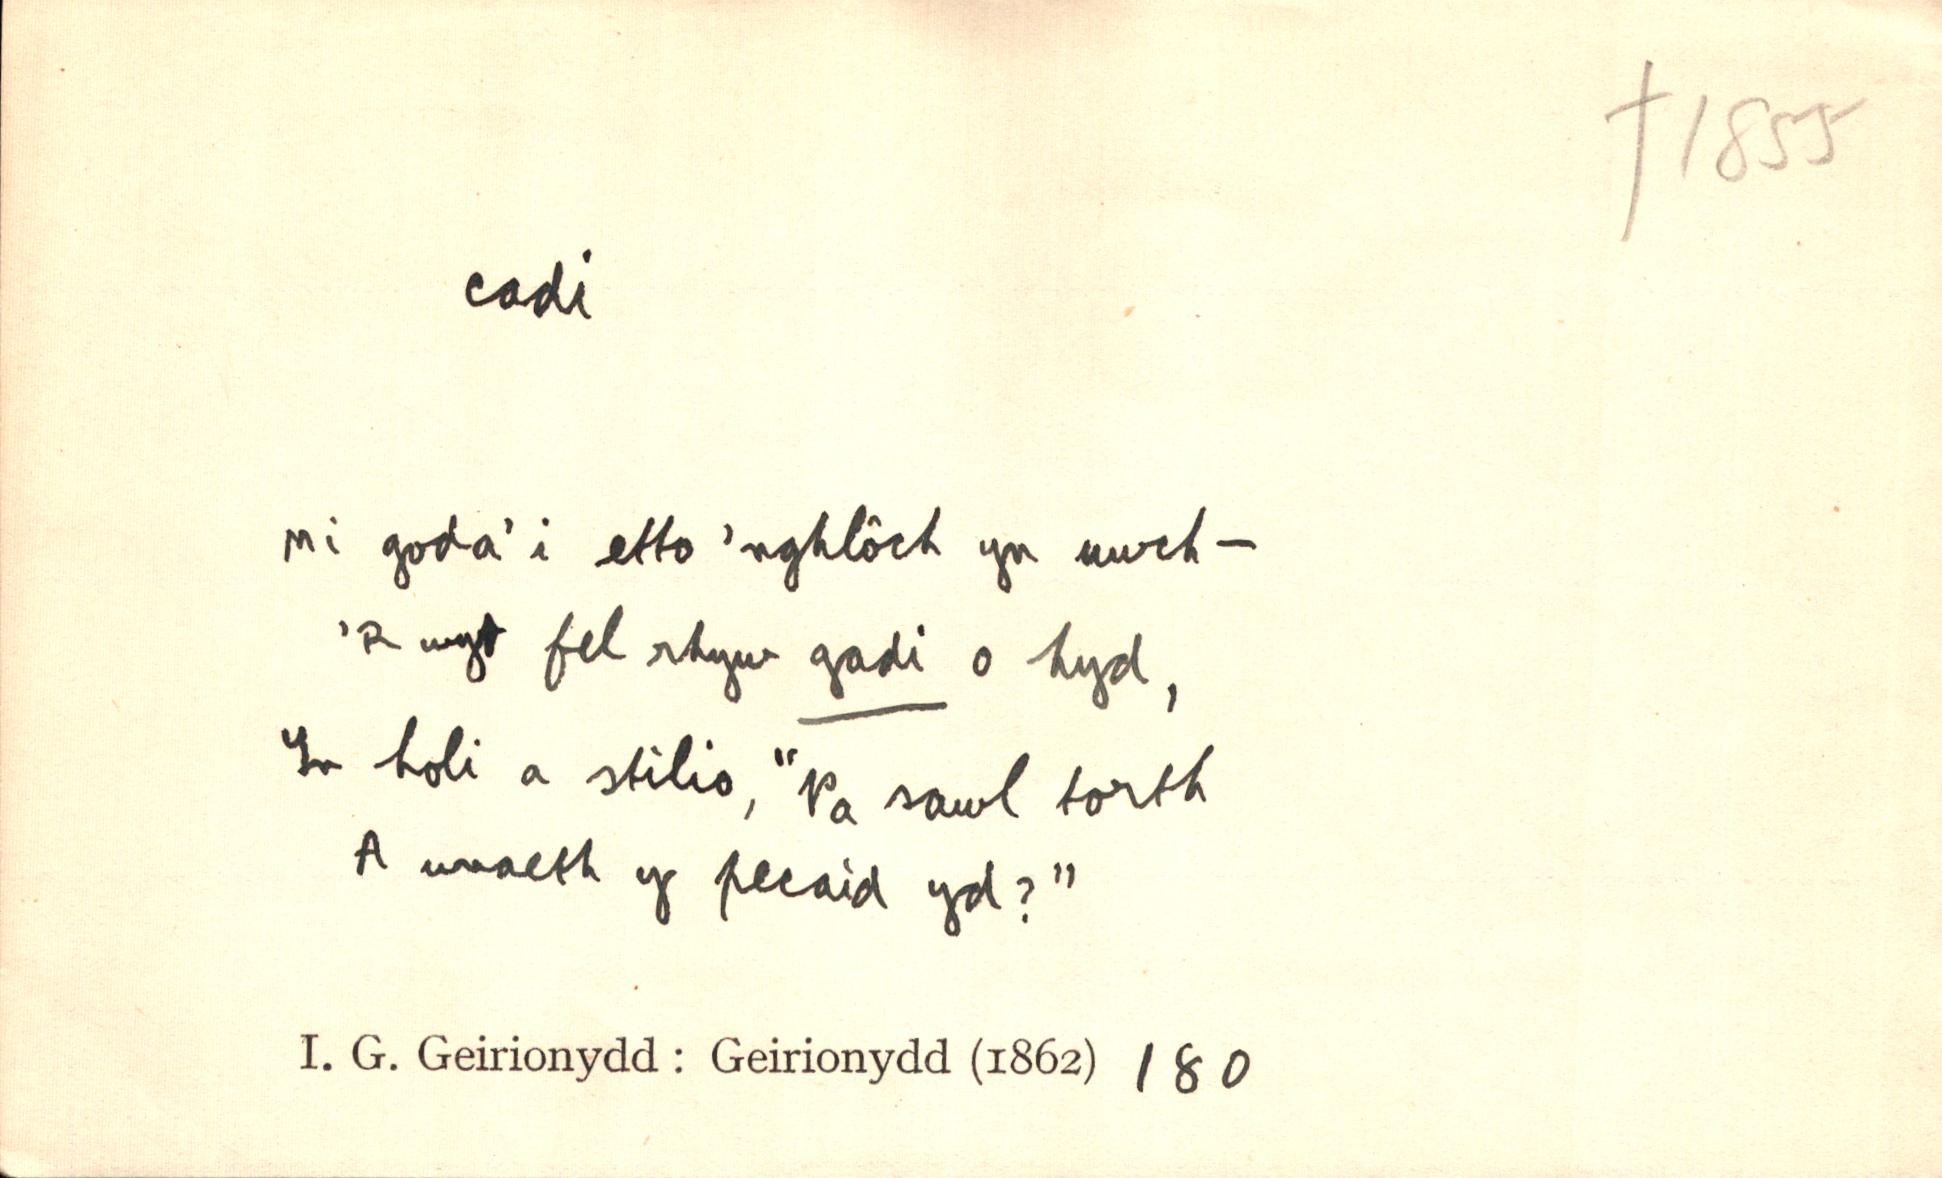 † 1855
cadi
Mi goda' i etto 'nghlôch yn uwch —
'R wyt fel rhyw gadi o hyd,
Yn holi a stilio, "Pa sawl torth
A wnaeth y pecaid yd?"
I. G. Geirionydd : Geirionydd (1862) 180